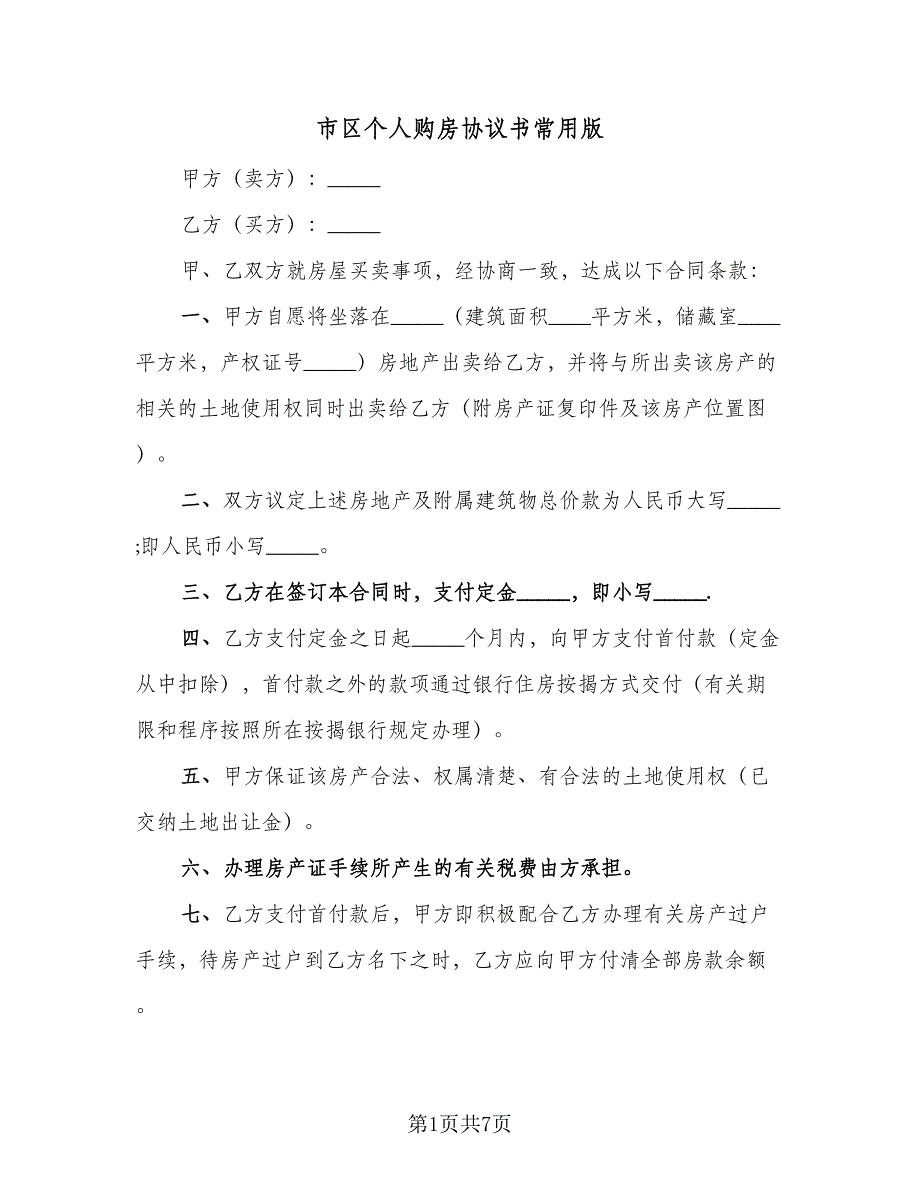 市区个人购房协议书常用版
甲方（卖方）：_____
乙方（买方）：_____
甲、乙双方就房屋买卖事项，经协商一致，达成以下合同条款：
一、甲方自愿将坐落在_____（建筑面积____平方米，储藏室____
平方米，产权证号_____）房地产出卖给乙方，并将与所出卖该房产的
相关的土地使用权同时出卖给乙方（附房产证复印件及该房产位置图
）。
二、双方议定上述房地产及附属建筑物总价款为人民币大写_____
;即人民币小写_____。
三、乙方在签订本合同时，支付定金_____，即小写_____.
四、乙方支付定金之日起_____个月内，向甲方支付首付款（定金
从中扣除），首付款之外的款项通过银行住房按揭方式交付（有关期
限和程序按照所在按揭银行规定办理）。
五、甲方保证该房产合法、权属清楚、有合法的土地使用权（已
交纳土地出让金）。
六、办理房产证手续所产生的有关税费由方承担。
七、乙方支付首付款后，甲方即积极配合乙方办理有关房产过户
手续，待房产过户到乙方名下之时，乙方应向甲方付清全部房款余额
。
第1页共7页